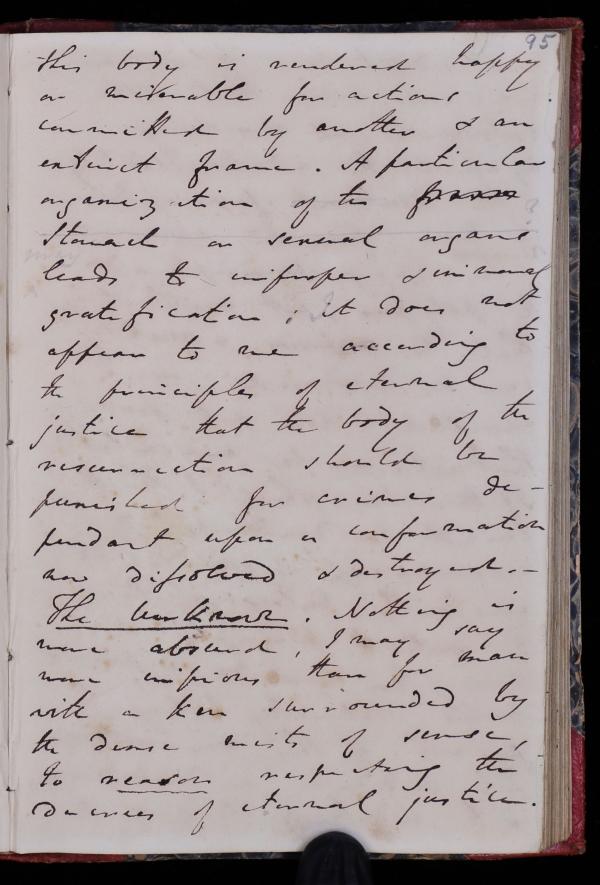 95
this body is rendered happy
or miserable for actions
committed by another & an
extinct frame. A particular
organization of the frame
stomach or sexual organs
leads to improper & immoral
gratification; it does not
appear to me according to
the principles of eternal
justice that the body of the
resurrection should be
punished for crimes de-
pendant upon a conformation
now dissolved & destroyed.-
The Unknown. Nothing is
more absurd, I may say
more impious than for man
with a ken surrounded by
the dense mists of sense,
to reason respecting the
decrees of eternal justice.